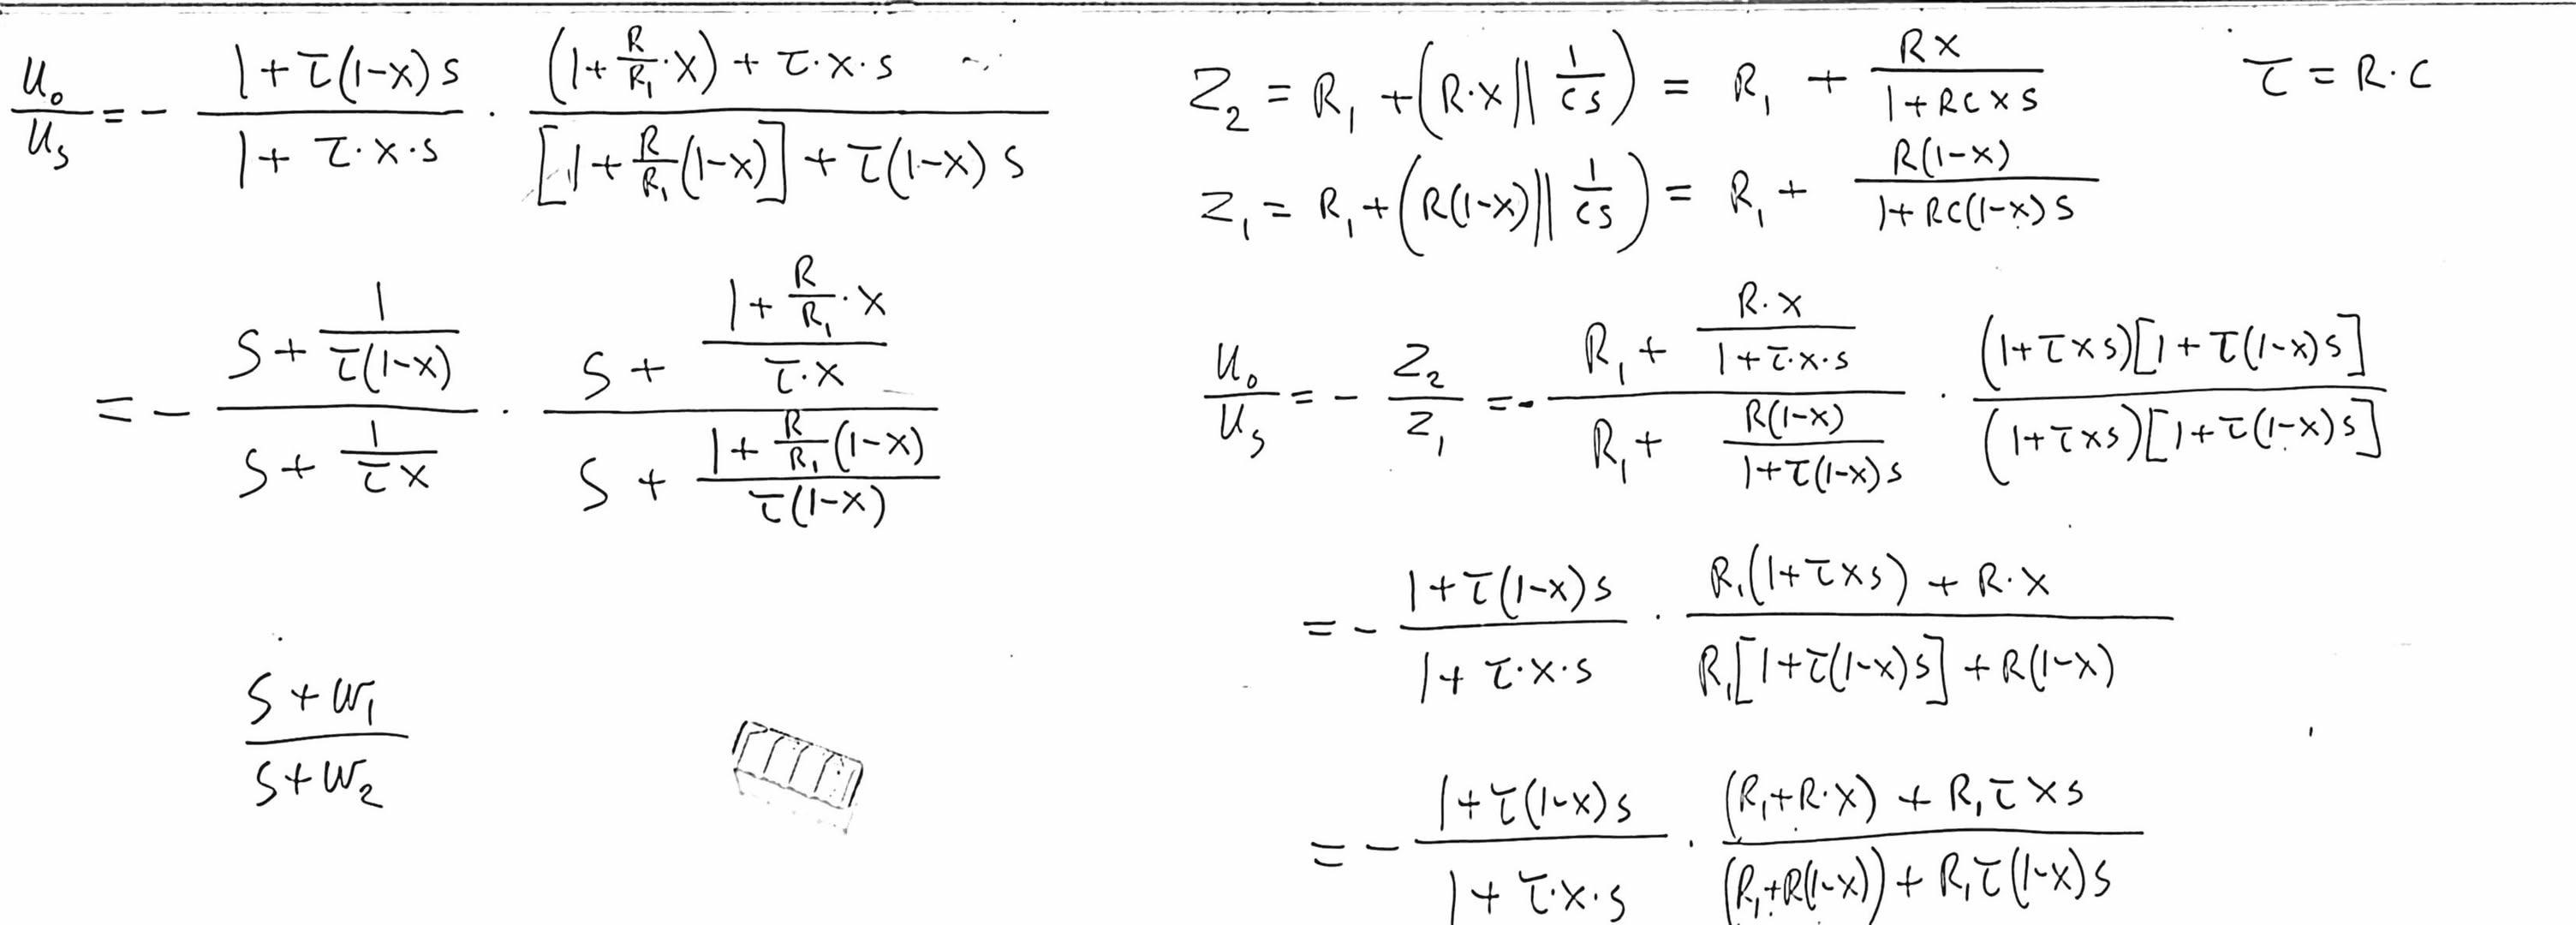 u₀/u_s = - (1+τ(1-x)s)/(1+τ·x·s) · ((1+R/R₁·x)+τ·x·s)/([1+R/R₁(1-x)]+τ(1-x)s)
= - (s+1/(τ(1-x)))/(s+1/(τx)) · (s+(1+R/R₁·x)/(τ·x))/(s+(1+R/R₁(1-x))/(τ(1-x)))
(s+w₁)/(s+w₂)
Z₂ = R₁ + (R·x || 1/(cs)) = R₁ + Rx/(1+RCxs)   τ = R·C
Z₁ = R₁ + (R(1-x) || 1/(cs)) = R₁ + R(1-x)/(1+RC(1-x)s)
u₀/u_s = - Z₂/Z₁ = - (R₁+(R·x)/(1+τ·x·s))/(R₁+(R(1-x))/(1+τ(1-x)s)) · ((1+τxs)[1+τ(1-x)s])/((1+τxs)[1+τ(1-x)s])
= - (1+τ(1-x)s)/(1+τ·x·s) · (R₁(1+τxs)+R·x)/(R₁[1+τ(1-x)s]+R(1-x))
= - (1+τ(1-x)s)/(1+τ·x·s) · ((R₁+R·x)+R₁τxs)/((R₁+R(1-x))+R₁τ(1-x)s)